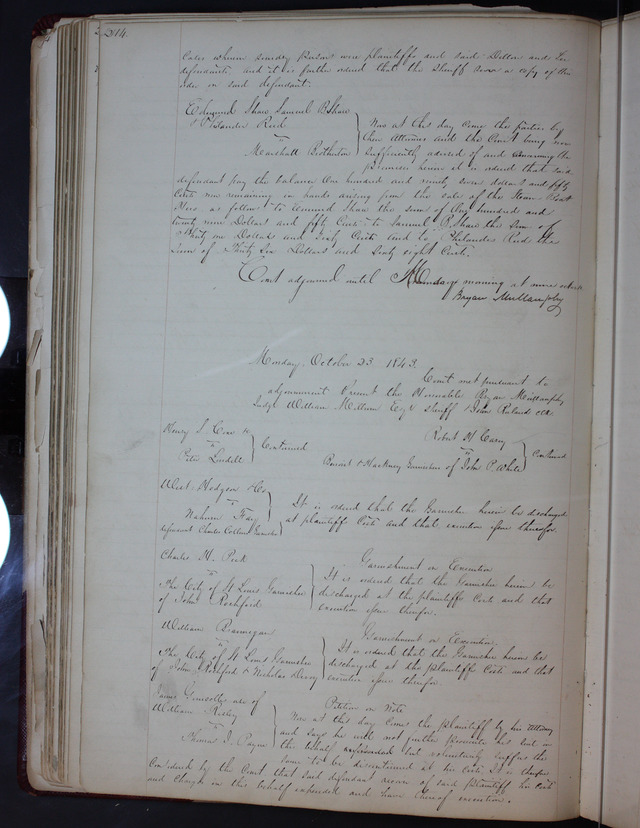 204.
Cases wherein
were plaintiffs and said
defendants, and it is further ordered that the Sheriff serve a copy of this
order on said defendant.
Edmund Shaw Samuel B Shaw
& Philander Reed
vs
Marshall Brotherton
Now at this day come the parties by
their Attornies and the Court being now
sufficiently advised of and concerning the
premises herein it is ordered that said
defendant pay the balance One hundred and ninety seven dollars and fifty
Cents now remaining in hands arising from the sale of the Steam Boat
as follows to Edmund Shaw the sum of One hundred and
twenty nine Dollars and fifty Cents to Samuel B. Shaw the sum of
Thirty one Dollars and Cents and to Philander Reed the
sum of Thirty Six Dollars and Sixty eight Cents.
Court adjourned until Monday morning at nine oclock
Bryan Mullanphy
Monday, October 23, 1843.
Court met pursuant to
adjournment Present the Honorable Bryan Mullanphy
Judge William Milburn Esqr Sheriff & John Ruland clk.
Henry L. Cox
vs
Peter Lindell
Continued
Robert H. Carry
vs
Garnishee of John P. White
Continued
West Hodgson & Co
vs
Nahum
defendant Charles Collins Garnishee
It is ordered that the Garnishee herein be discharged
at plaintiffs Costs and that execution issue therefor
Charles H. Peck
vs
The City of St Louis Garnishee
of John Rochford
Garnishment on Execution
It is ordered that the Garnishee herein be
discharged at the plaintiffs Costs and that
execution issue therefor.
William Bannegan
vs
The City of St Louis Garnishee
of John Rochford & Nicholas
Garnishment on Execution.
It is ordered that the Garnishee herein be
discharged at the plaintiffs Costs and that
execution issue therefor.
James use of
William Risley
vs
Thomas J. Payne
Petition on Note
Now at this day comes the plaintiff by his Attorney
and says he will not further prosecute his suit in
this behalf but voluntarily suffers the
same to be discontinued at his Costs It is therefore
Considered by the Court that said defendant recover of said plaintiff his Costs
and Charges in this behalf expended and have thereof execution.